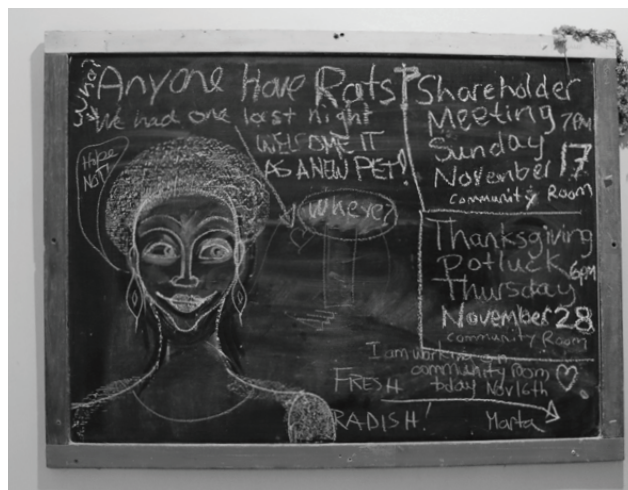 Anyone Have Rats?
who?
We had one last night
WELCOME IT
AS A NEW PET!
Hope
NOT!
Where?
Shareholder
Meeting 7PM
Sunday
November 17
Community Room
Thanksgiving
Potluck 6pm
Thursday
November 28
Community Room
I am working in
community room
today Nov 16th
Marta
FRESH
RADISH!